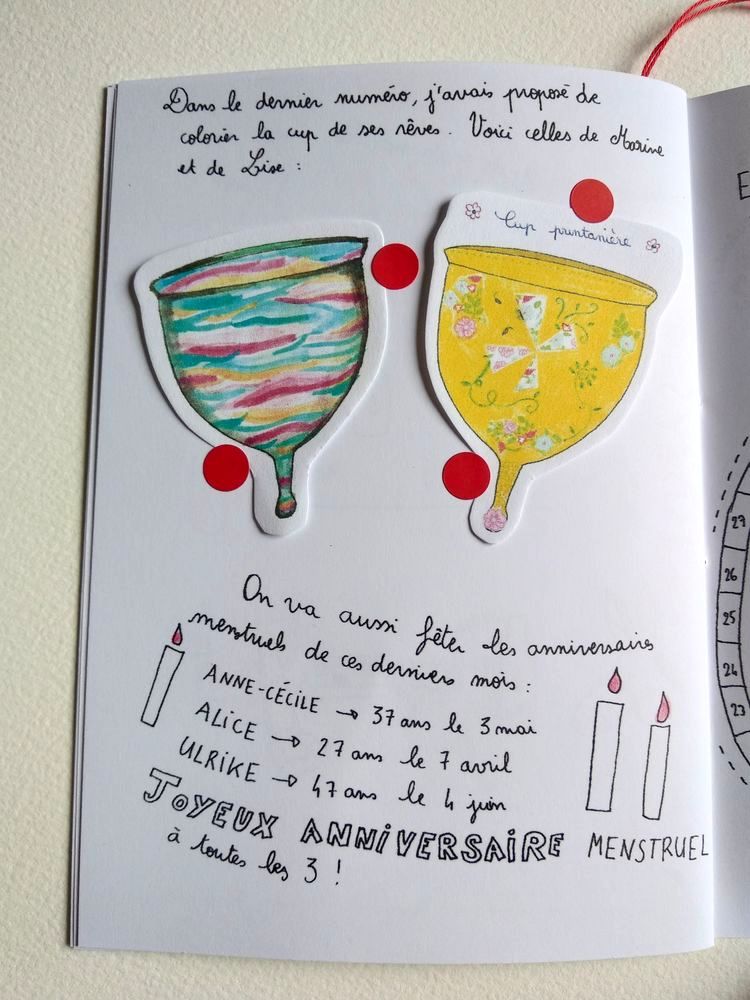 Dans le dernier numéro, j'avais proposé de
colorier la cup de ses rêves. Voici celles de Marine
et de Lise :
Cup printanière
On va aussi fêter les anniversaires
menstruels de ces derniers mois :
ANNE-CÉCILE → 37 ans le 3 mai
ALICE → 27 ans le 7 avril
ULRIKE → 47 ans le 4 juin
JOYEUX ANNIVERSAIRE MENSTRUEL
à toutes les 3 !
E
27
26
25
24
23